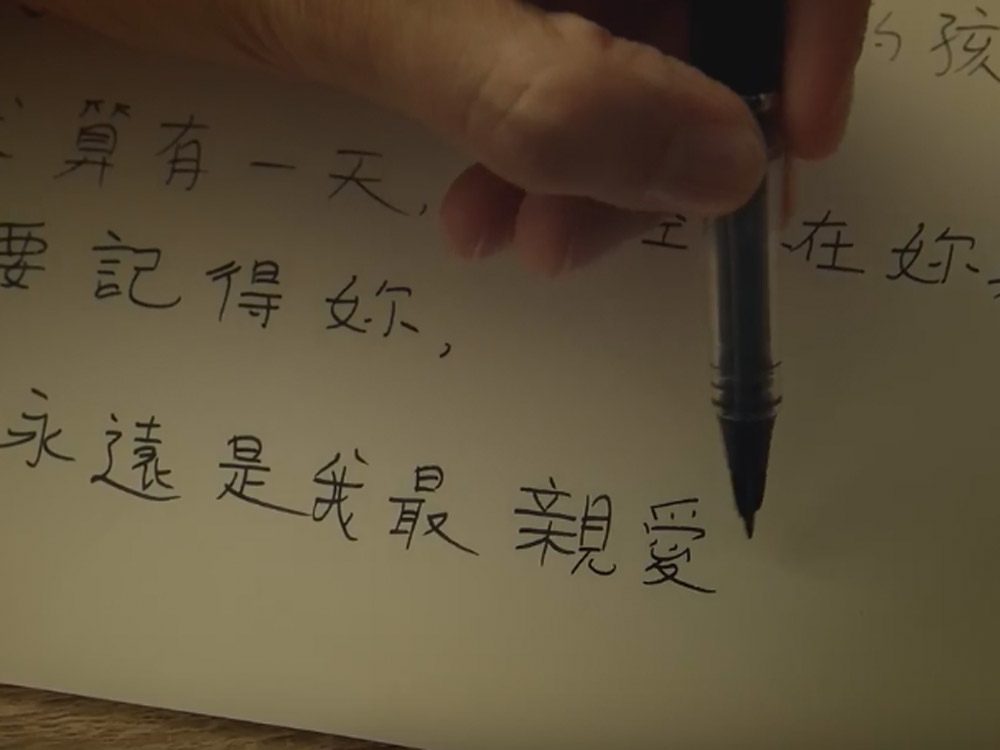 的孩
算有一天，
在妳
要記得妳，
永遠是我最親愛